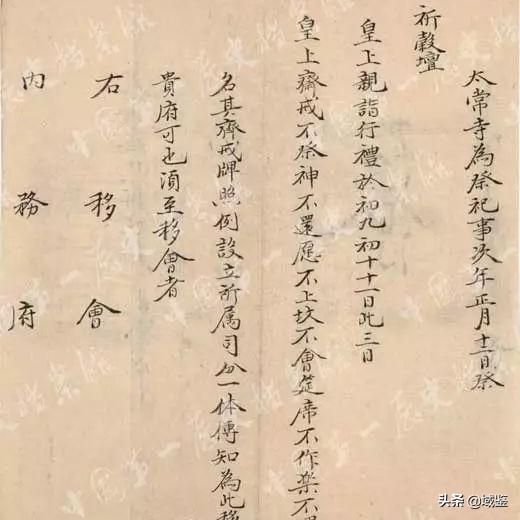 太常寺為祭祀事次年正月十一日祭
祈穀壇
皇上親詣行禮於初九初十十一日此三日
皇上齋戒不祭神不還愿不上坟不會筵席不作樂不
名其齋戒牌照例設立所属司份一体傳知為此移
貴府可也須至移會者
右移會
內務府
中國第一歷史檔案館
头条 @域鉴